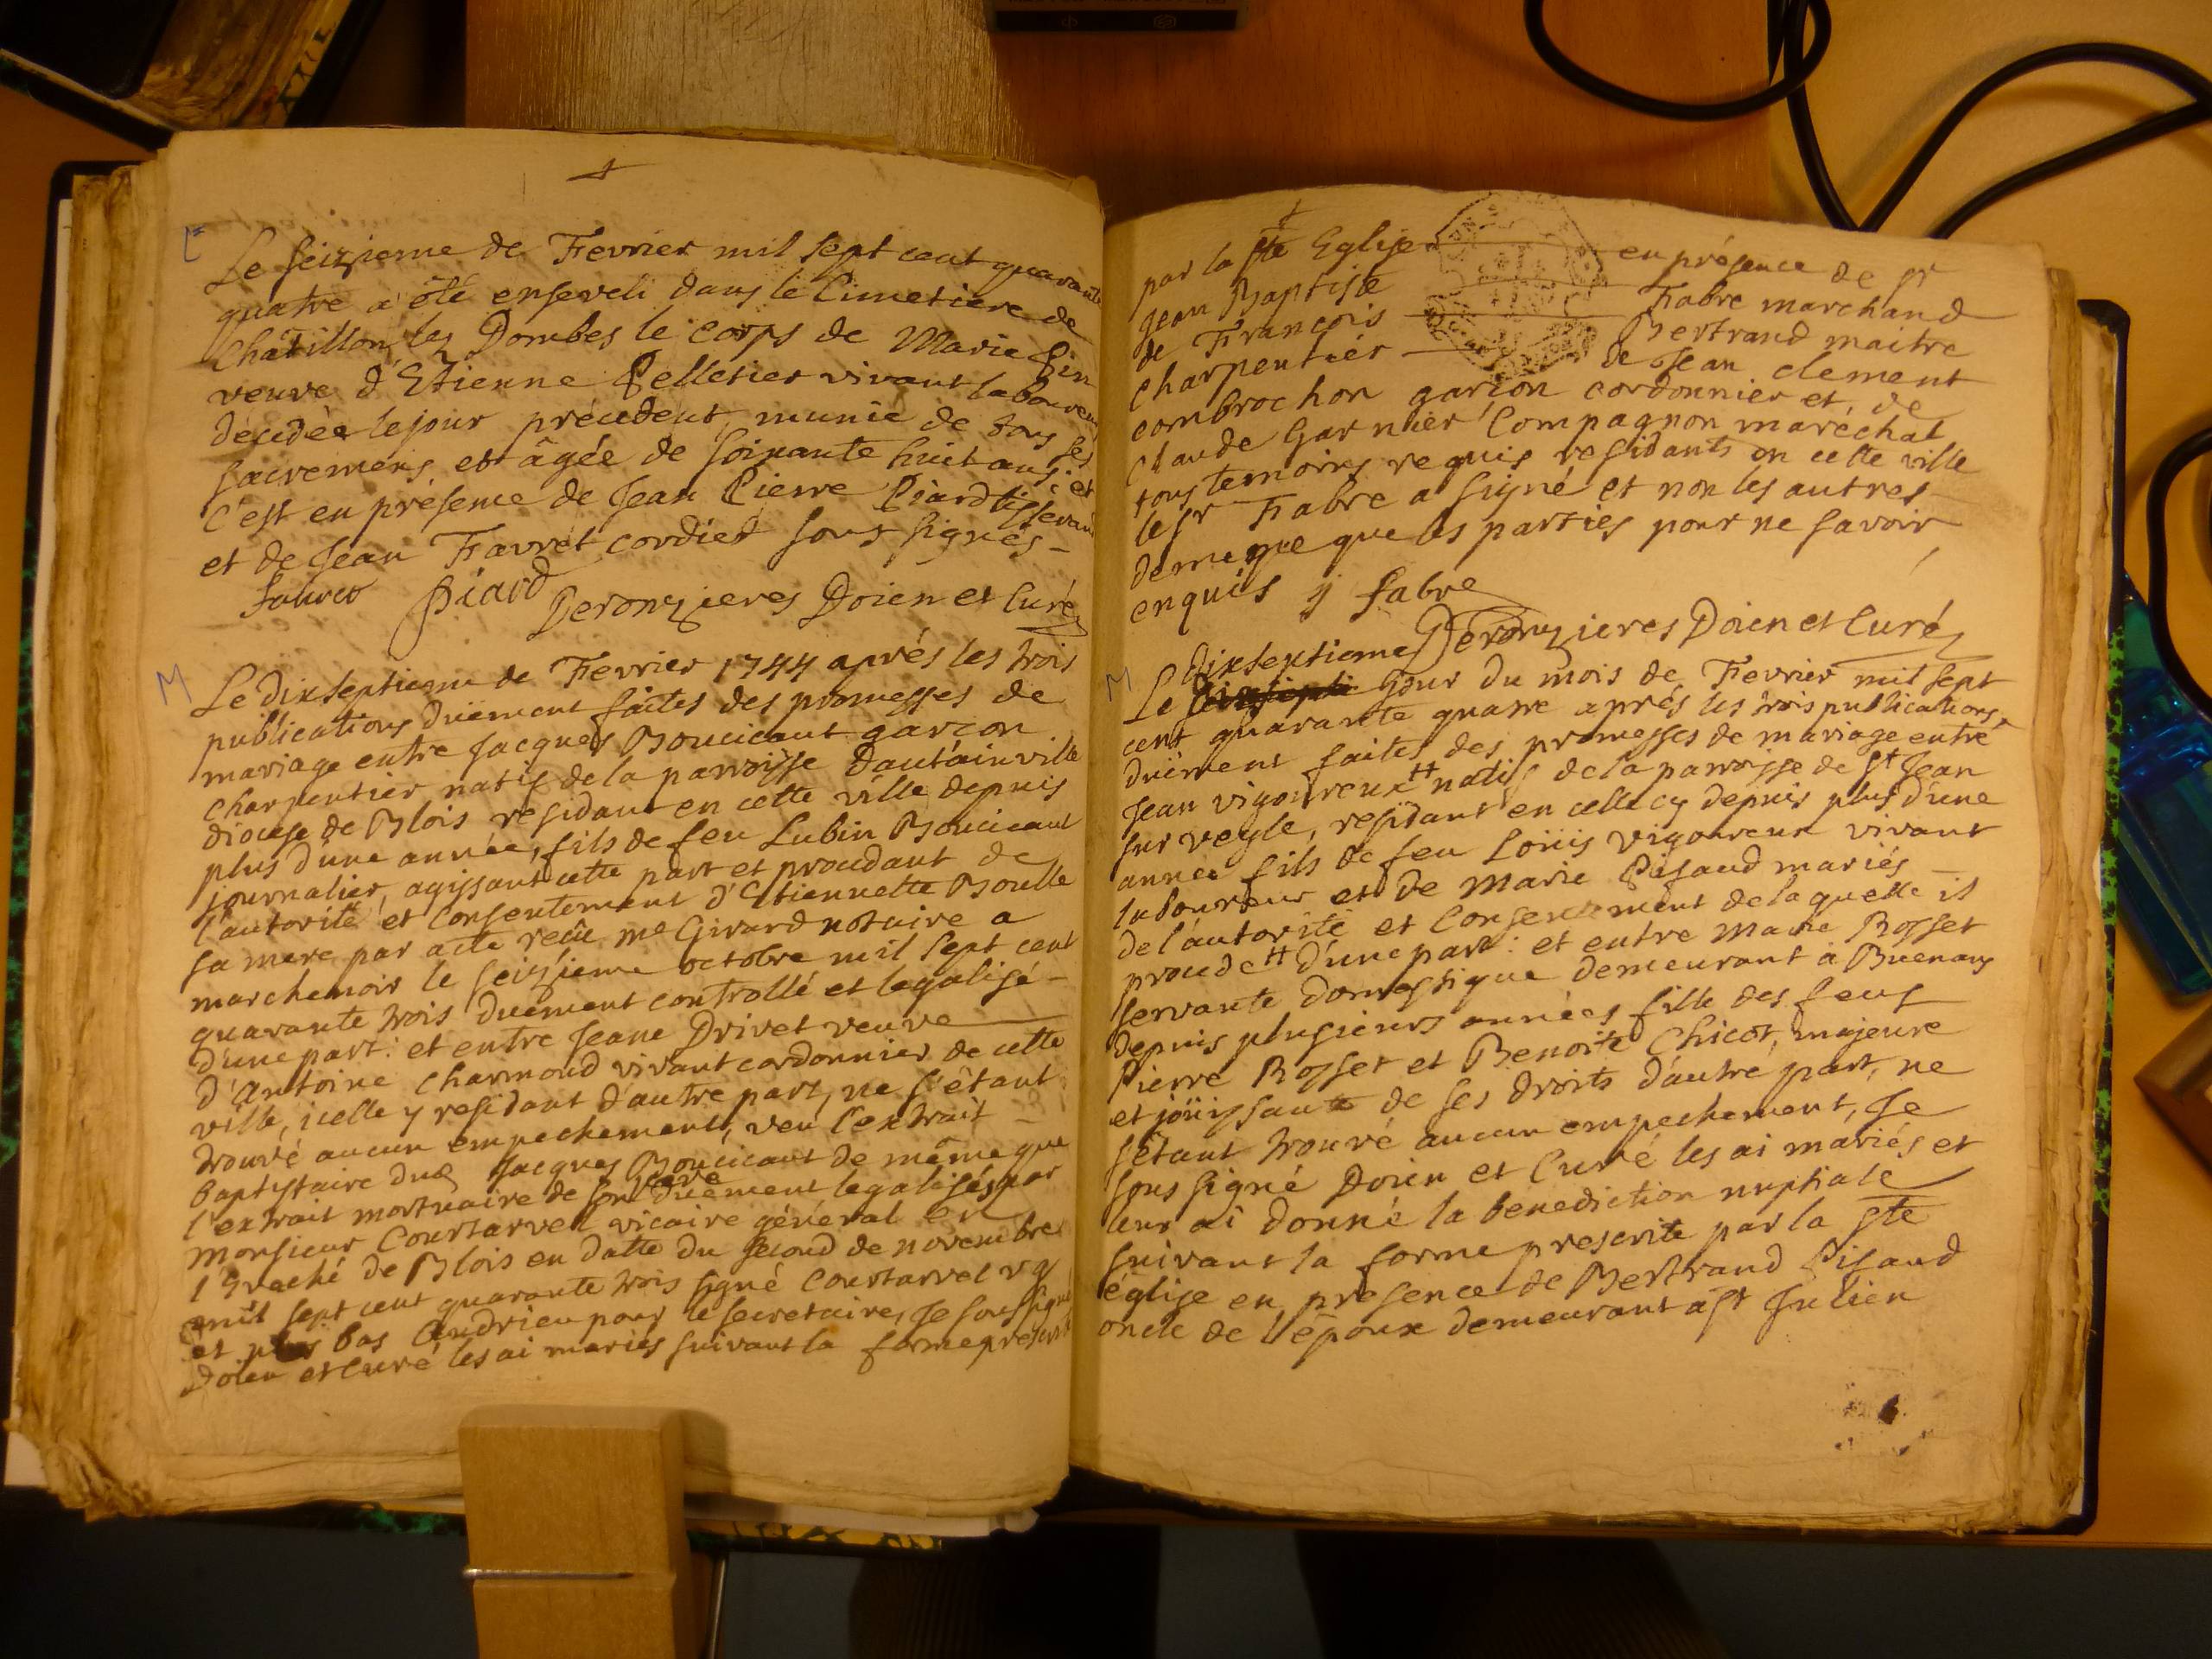 Le seizieme de Fevrier mil sept cent quarante
quatre a été enseveli dans le Cimetiere de
Chatillon les Dombes le corps de Marie Pin
veuve d'Etienne Pelletier vivant laboureur
decedée le jour précedent, munie de tous ses
sacremens et âgée de soixante huit ans, et
c'est en présence de Jean Pierre Piard tisserand
et de Jean Favret cordier sous signés -
favret Piard
Deronzieres Doien et Curé
M
Le dixseptieme de Fevrier 1744 aprés les trois
publications duement faites des promesses de
mariage entre Jacques Boucicaut garçon
charpentier natif de la parroisse dautainville
diocese de Blois residant en cette ville depuis
plus d'une année, fils de feu Lubin Boucicaut
journalier, agissant cette part et procedant de
l'autorité et consentement d'Etiennette Boulle
sa mere par acte reçû me Girard notaire a
marchenoir le seizieme octobre mil sept cent
quarante trois duement controllé et legalisé -
d'une part : et entre Jeane Drivet veuve
d'Antoine Charmond vivant cordonnier de cette
ville, icelle y residant d'autre part, ne s'étant
trouvé aucun empechement, veu l'extrait -
baptistaire dud Jacques Boucicaut de même que
l'extrait mortuaire de son pere duement legalisés par
monsieur Courtarvel vicaire géneral en
l'Eveché de Blois en datte du second de novembre
mil sept cent quarante trois signé Courtarvel v g
et plus bas Andrieu pour le secretaire, Je soussigné
Doien et Curé les ai mariés suivant la forme prescrite
par la ste Eglise en présence de sr
Jean Baptiste Fabre marchand
de François Bertrand maitre
charpentier de Jean clement
combrochon garçon cordonnier et de
Claude Garnier Compagnon maréchal
tous temoins requis residants en cette ville
le sr Fabre a signé et non les autres
de meme que les parties pour ne savoir
enquis Fabre
Deronzieres Doien et Curé
M
dixseptieme
Le jour du mois de Fevrier mil sept
cent quarante quatre aprés les trois publications
duement faites des promesses de mariage entre
Jean vigoureux natif de la parroisse de St Jean
sur veyle, residant en celle cy depuis plus d'une
année fils de feu Loüis vigoureux vivant
laboureur et de Marie Pisaud mariés
de l'autorité et Consentement de laquelle il
procede d'une part : et entre Marie Bosset
servante domestique demeurant à Buenans
depuis plusieurs années fille des feus
Pierre Bosset et Benoite Chicot, majeure
et joüissante de ses droits d'autre part, ne
s'étant trouvé aucun empechement, Je
sous signé Doien et Curé les ai mariés et
leur ai donné la benediction nuptiale
suivant la forme prescrite par la ste
église en presence de Bertrand Pisaud
oncle de l'époux demeurant à St Julien